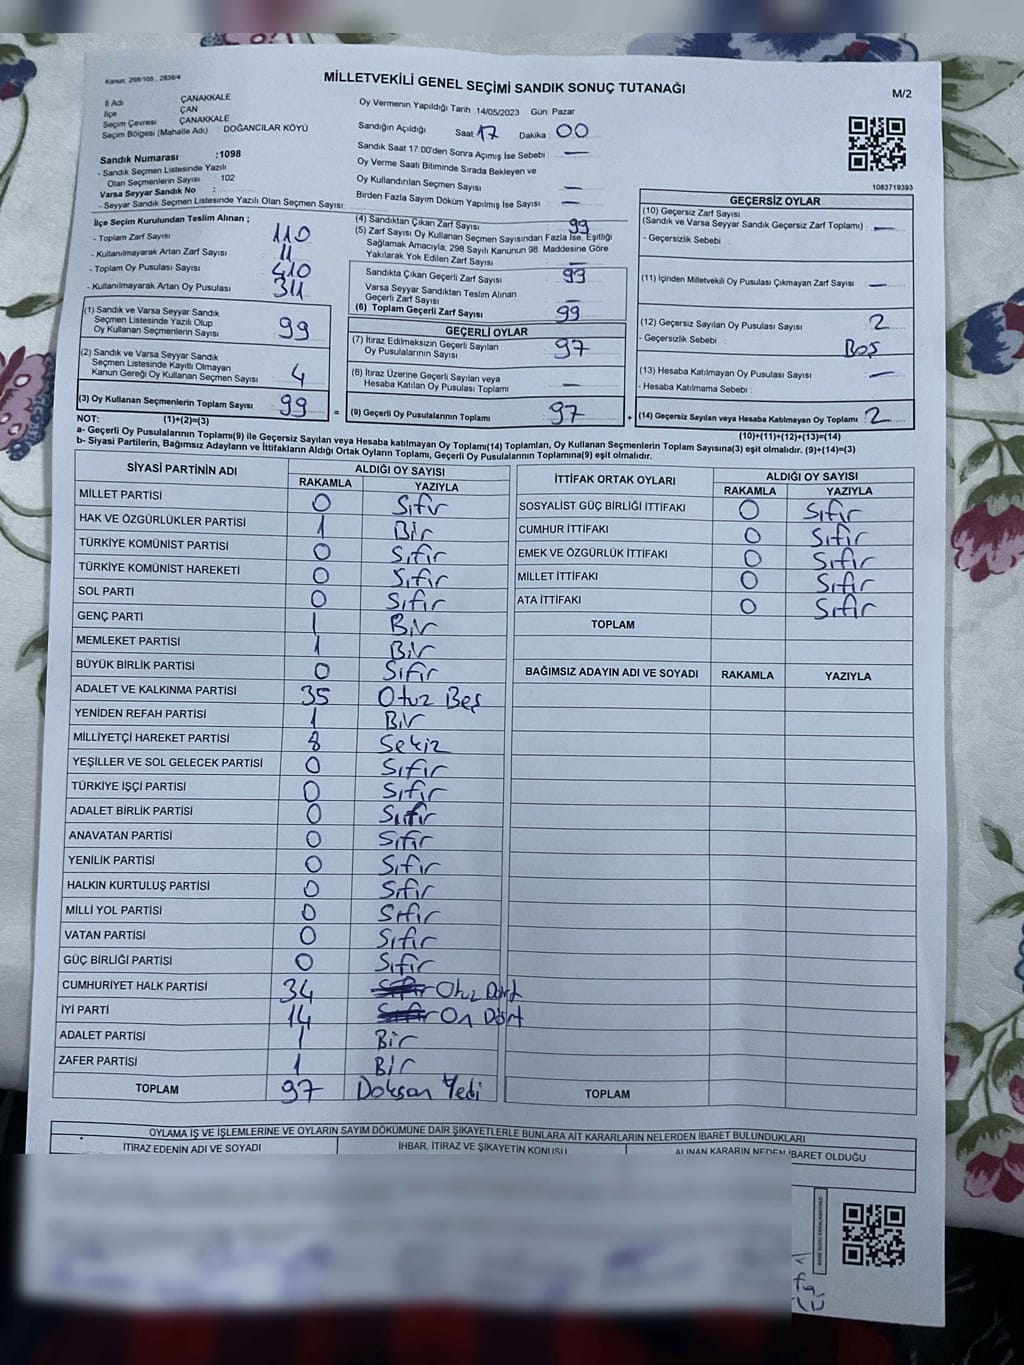 Kanun, 298/105 , 2839/4
MİLLETVEKİLİ GENEL SEÇİMİ SANDIK SONUÇ TUTANAĞI
M/2
İl Adı ÇANAKKALE
İlçe ÇAN
Seçim Çevresi ÇANAKKALE
Seçim Bölgesi (Mahalle Adı) DOĞANCILAR KÖYÜ
Sandık Numarası :1098
- Sandık Seçmen Listesinde Yazılı
Olan Seçmenlerin Sayısı : 102
Varsa Seyyar Sandık No :
- Seyyar Sandık Seçmen Listesinde Yazılı Olan Seçmen Sayısı:
Oy Vermenin Yapıldığı Tarih 14/05/2023 Gün Pazar
Sandığın Açıldığı Saat 17 Dakika 00
Sandık Saat 17:00'den Sonra Açımış İse Sebebi : —
Oy Verme Saati Bitiminde Sırada Bekleyen ve
Oy Kullandırılan Seçmen Sayısı —
Birden Fazla Sayım Döküm Yapılmış İse Sayısı : —
1083719393
İlçe Seçim Kurulundan Teslim Alınan ;
- Toplam Zarf Sayısı 110
- Kullanılmayarak Artan Zarf Sayısı 11
- Toplam Oy Pusulası Sayısı 410
- Kullanılmayarak Artan Oy Pusulası 311
(1) Sandık ve Varsa Seyyar Sandık
Seçmen Listesinde Yazılı Olup
Oy Kullanan Seçmenlerin Sayısı 99
(2) Sandık ve Varsa Seyyar Sandık
Seçmen Listesinde Kayıtlı Olmayan
Kanun Gereği Oy Kullanan Seçmen Sayısı 4
(3) Oy Kullanan Seçmenlerin Toplam Sayısı 99
(4) Sandıktan Çıkan Zarf Sayısı 99
(5) Zarf Sayısı Oy Kullanan Seçmen Sayısından Fazla İse, Eşitliği
Sağlamak Amacıyla, 298 Sayılı Kanunun 98. Maddesine Göre
Yakılarak Yok Edilen Zarf Sayısı —
Sandıkta Çıkan Geçerli Zarf Sayısı 99
Varsa Seyyar Sandıktan Teslim Alınan
Geçerli Zarf Sayısı —
(6) Toplam Geçerli Zarf Sayısı 99
GEÇERLİ OYLAR
(7) İtiraz Edilmeksizin Geçerli Sayılan
Oy Pusulalarının Sayısı 97
(8) İtiraz Üzerine Geçerli Sayılan veya
Hesaba Katılan Oy Pusulası Toplamı —
= (9) Geçerli Oy Pusulalarının Toplamı 97
GEÇERSİZ OYLAR
(10) Geçersiz Zarf Sayısı
(Sandık ve Varsa Seyyar Sandık Geçersiz Zarf Toplamı) —
- Geçersizlik Sebebi :
(11) İçinden Milletvekili Oy Pusulası Çıkmayan Zarf Sayısı —
(12) Geçersiz Sayılan Oy Pusulası Sayısı 2
- Geçersizlik Sebebi : Boş
(13) Hesaba Katılmayan Oy Pusulası Sayısı —
- Hesaba Katılmama Sebebi :
+ (14) Geçersiz Sayılan veya Hesaba Katılmayan Oy Toplamı 2
NOT: (1)+(2)=(3)
(10)+(11)+(12)+(13)=(14)
a- Geçerli Oy Pusulalarının Toplamı(9) ile Geçersiz Sayılan veya Hesaba katılmayan Oy Toplamı(14) Toplamları, Oy Kullanan Seçmenlerin Toplam Sayısına(3) eşit olmalıdır. (9)+(14)=(3)
b- Siyasi Partilerin, Bağımsız Adayların ve İttifakların Aldığı Ortak Oyların Toplamı, Geçerli Oy Pusulalarının Toplamına(9) eşit olmalıdır.
SİYASİ PARTİNİN ADI ALDIĞI OY SAYISI
RAKAMLA YAZIYLA
MİLLET PARTİSİ 0 Sıfır
HAK VE ÖZGÜRLÜKLER PARTİSİ 1 Bir
TÜRKİYE KOMÜNİST PARTİSİ 0 Sıfır
TÜRKİYE KOMÜNİST HAREKETİ 0 Sıfır
SOL PARTİ 0 Sıfır
GENÇ PARTİ 1 Bir
MEMLEKET PARTİSİ 1 Bir
BÜYÜK BİRLİK PARTİSİ 0 Sıfır
ADALET VE KALKINMA PARTİSİ 35 Otuz Beş
YENİDEN REFAH PARTİSİ 1 Bir
MİLLİYETÇİ HAREKET PARTİSİ 8 Sekiz
YEŞİLLER VE SOL GELECEK PARTİSİ 0 Sıfır
TÜRKİYE İŞÇİ PARTİSİ 0 Sıfır
ADALET BİRLİK PARTİSİ 0 Sıfır
ANAVATAN PARTİSİ 0 Sıfır
YENİLİK PARTİSİ 0 Sıfır
HALKIN KURTULUŞ PARTİSİ 0 Sıfır
MİLLİ YOL PARTİSİ 0 Sıfır
VATAN PARTİSİ 0 Sıfır
GÜÇ BİRLİĞİ PARTİSİ 0 Sıfır
CUMHURİYET HALK PARTİSİ 34 Sıfır Otuz Dört
İYİ PARTİ 14 Sıfır On Dört
ADALET PARTİSİ 1 Bir
ZAFER PARTİSİ 1 Bir
TOPLAM 97 Doksan Yedi
İTTİFAK ORTAK OYLARI ALDIĞI OY SAYISI
RAKAMLA YAZIYLA
SOSYALİST GÜÇ BİRLİĞİ İTTİFAKI 0 Sıfır
CUMHUR İTTİFAKI 0 Sıfır
EMEK VE ÖZGÜRLÜK İTTİFAKI 0 Sıfır
MİLLET İTTİFAKI 0 Sıfır
ATA İTTİFAKI 0 Sıfır
TOPLAM
BAĞIMSIZ ADAYIN ADI VE SOYADI RAKAMLA YAZIYLA
TOPLAM
OYLAMA İŞ VE İŞLEMLERİNE VE OYLARIN SAYIM DÖKÜMÜNE DAİR ŞİKAYETLERLE BUNLARA AİT KARARLARIN NELERDEN İBARET BULUNDUKLARI
İTİRAZ EDENİN ADI VE SOYADI İHBAR, İTİRAZ VE ŞİKAYETİN KONUSU ALINAN KARARIN NEDEN İBARET OLDUĞU